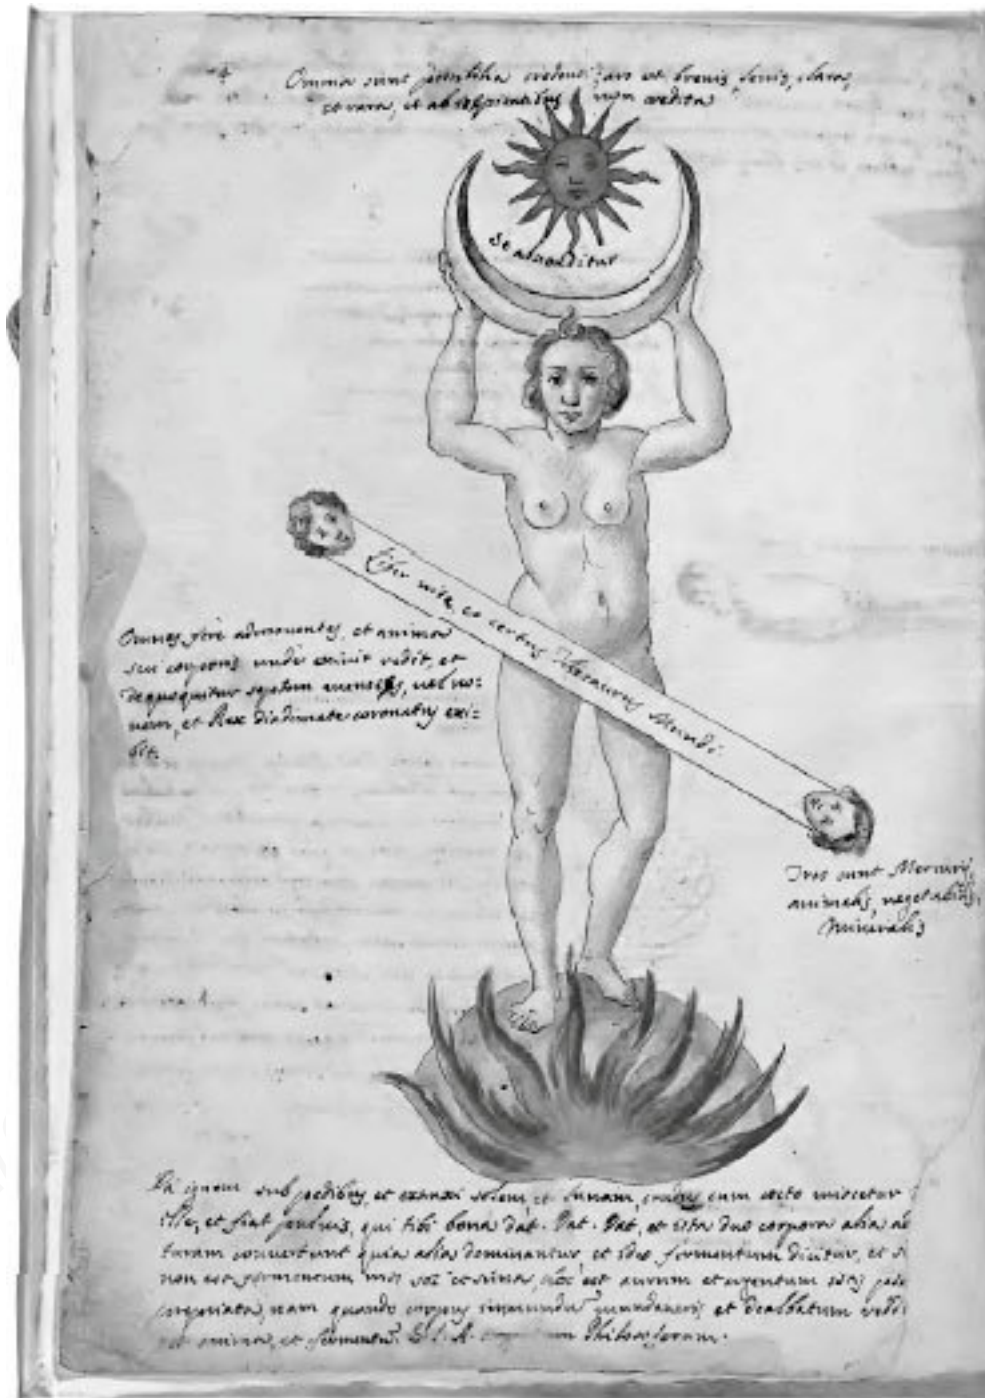 Omnia sunt possibilia credenti; ars est brevis, levis, clara,
et vera, et ab insipientibus non credita
Se ascenditur
Liber vitæ, et certus Thesaurus Mundi.
Omnes fere admoventes, et animo
sui corporis unde exivit redit, et
septem menses, vel no:
nem, et Rex diademate coronatus exi:
bit.
Tres sunt Mercurii,
animalis, vegetabilis,
Mineralis
Da ignem sub pedibus, et extraxi solem, et Lunam, crudus cum cocto miscetur
ille, et fiat pulvis, qui tibi bona dat. Dat. Dat, et ista duo corpora alia
turam convertunt quia alia dominantur, et ideo fermentum dicitur, et
non est fermentum nisi sol et Luna, hoc est aurum et argentum
nam quando corpus immundum mundaveris et dealbatum
anima, et fermentum Philosoforum.